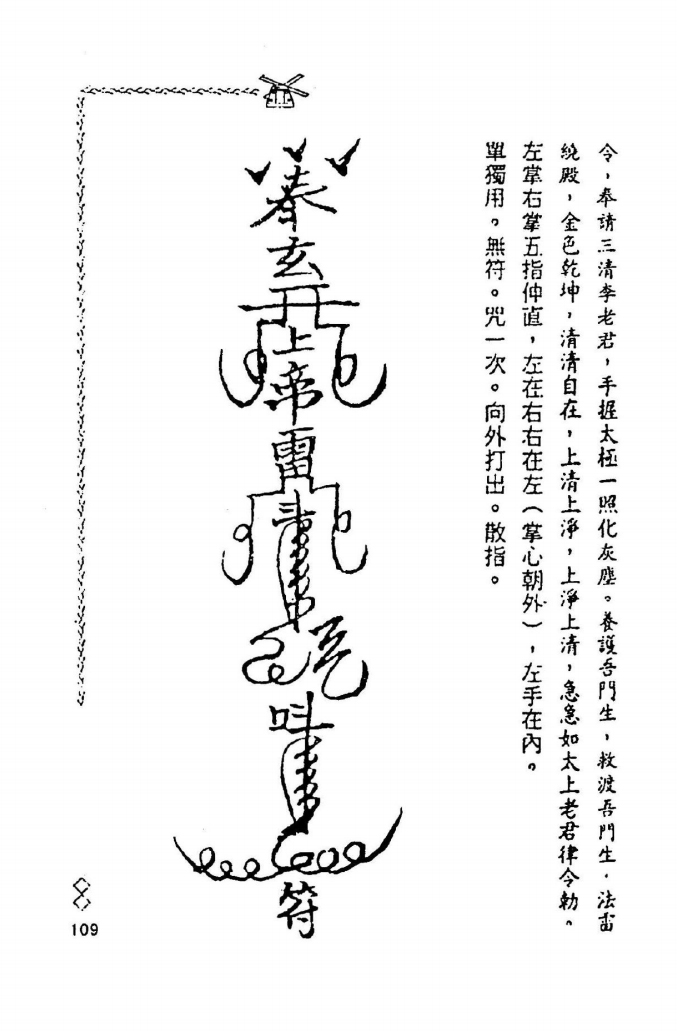 令，奉請三清李老君，手握太極一照化灰塵。養護吾門生，救渡吾門生．法雷
繞殿，金色乾坤，清清自在，上清上淨，上淨上清，急急如太上老君律令勅。
左掌右掌五指伸直，左在右右在左（掌心朝外），左手在內。
單獨用。無符。咒一次。向外打出。散指。
奉玄
上帝
雷
符
109